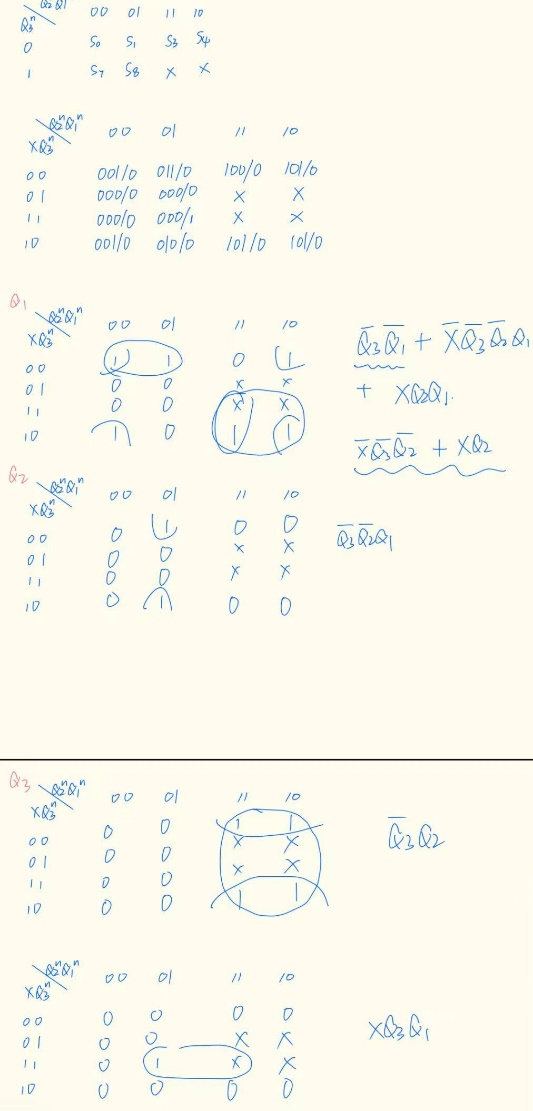 Q₂Q₁ 00 01 11 10
Q₃ⁿ
0 S₀ S₁ S₃ S₄
1 S₇ S₈ × ×
Q₂ⁿQ₁ⁿ 00 01 11 10
XQ₃ⁿ
00 001/0 011/0 100/0 101/0
01 000/0 000/0 × ×
11 000/0 000/1 × ×
10 001/0 010/0 101/0 101/0
Q₁
Q₂ⁿQ₁ⁿ 00 01 11 10
XQ₃ⁿ
00 1 1 0 1
01 0 0 × ×
11 0 0 × ×
10 1 0 1 1
Q̅₃Q̅₁ + X̅Q̅₃Q̅₂Q₁
+ XQ₂Q₁.
X̅Q̅₃Q̅₂ + XQ₂
Q₂
Q₂ⁿQ₁ⁿ 00 01 11 10
XQ₃ⁿ
00 0 1 0 0
01 0 0 × ×
11 0 0 × ×
10 0 1 0 0
Q̅₃Q̅₂Q₁
Q₃
Q₂ⁿQ₁ⁿ 00 01 11 10
XQ₃ⁿ
00 0 0 1 1
01 0 0 × ×
11 0 0 × ×
10 0 0 1 1
Q̅₃Q₂
Q₂ⁿQ₁ⁿ 00 01 11 10
XQ₃ⁿ
00 0 0 0 0
01 0 0 × ×
11 0 1 × ×
10 0 0 0 0
XQ₃Q₁